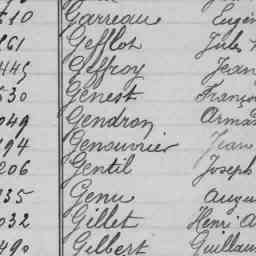 510 Garreau Eugèn
261 Gefflot Jules
445 Geffroy Jean
530 Genest Franço
049 Gendron Arma
194 Genouvrier Jean
206 Gentil Joseph
235 Genu Augu
032 Gillet Henri A
490 Gilbert Guillau